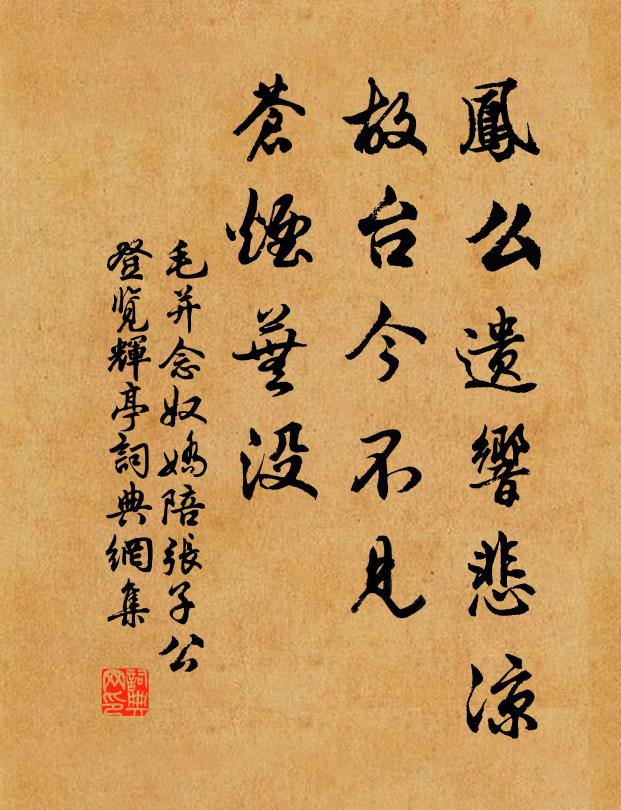 鳳么遗響悲凉
故台今不見
蒼煙蕪没
毛并念奴嬌陪張子公
登览輝亭詞典網集
詞典网印